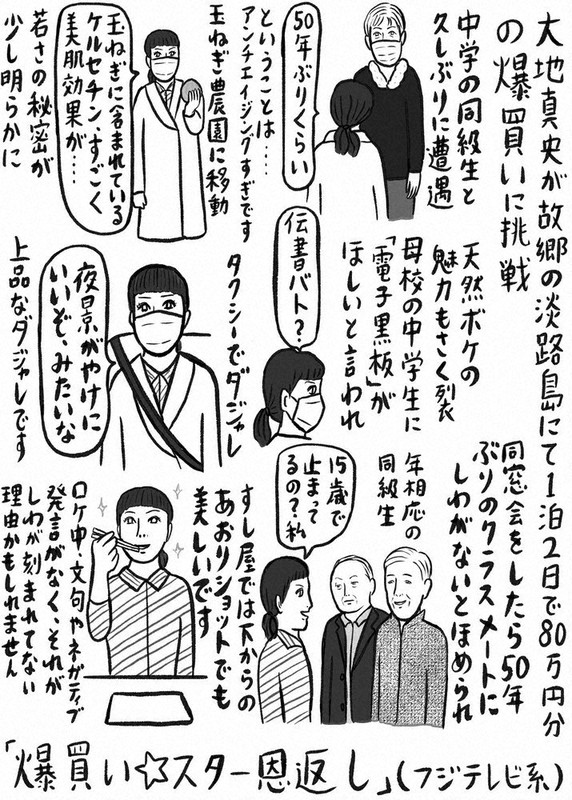 大地真央が故郷の淡路島にて1泊2日で80万円分
の爆買いに挑戦
中学の同級生と
久しぶりに遭遇
50年ぶりくらい
ということは……
アンチエイジングすぎです
玉ねぎ農園に移動
玉ねぎに含まれている
ケルセチン、すごく
美肌効果が…
若さの秘密が
少し明らかに
天然ボケの
魅力もさく裂
母校の中学生に
「電子黒板」が
ほしいと言われ
伝書バト?
タクシーでダジャレ
夜景がやけに
いいぞ、みたいな
上品なダジャレです
同窓会をしたら50年
ぶりのクラスメートに
しわがないとほめられ
年相応の
同級生
15歳で
止まって
るの?私
すし屋では下からの
あおりショットでも
美しいです
ロケ中、文句やネガティブ
発言がなく、それが
しわが刻まれてない
理由かもしれません
「爆買い☆スター恩返し」(フジテレビ系)